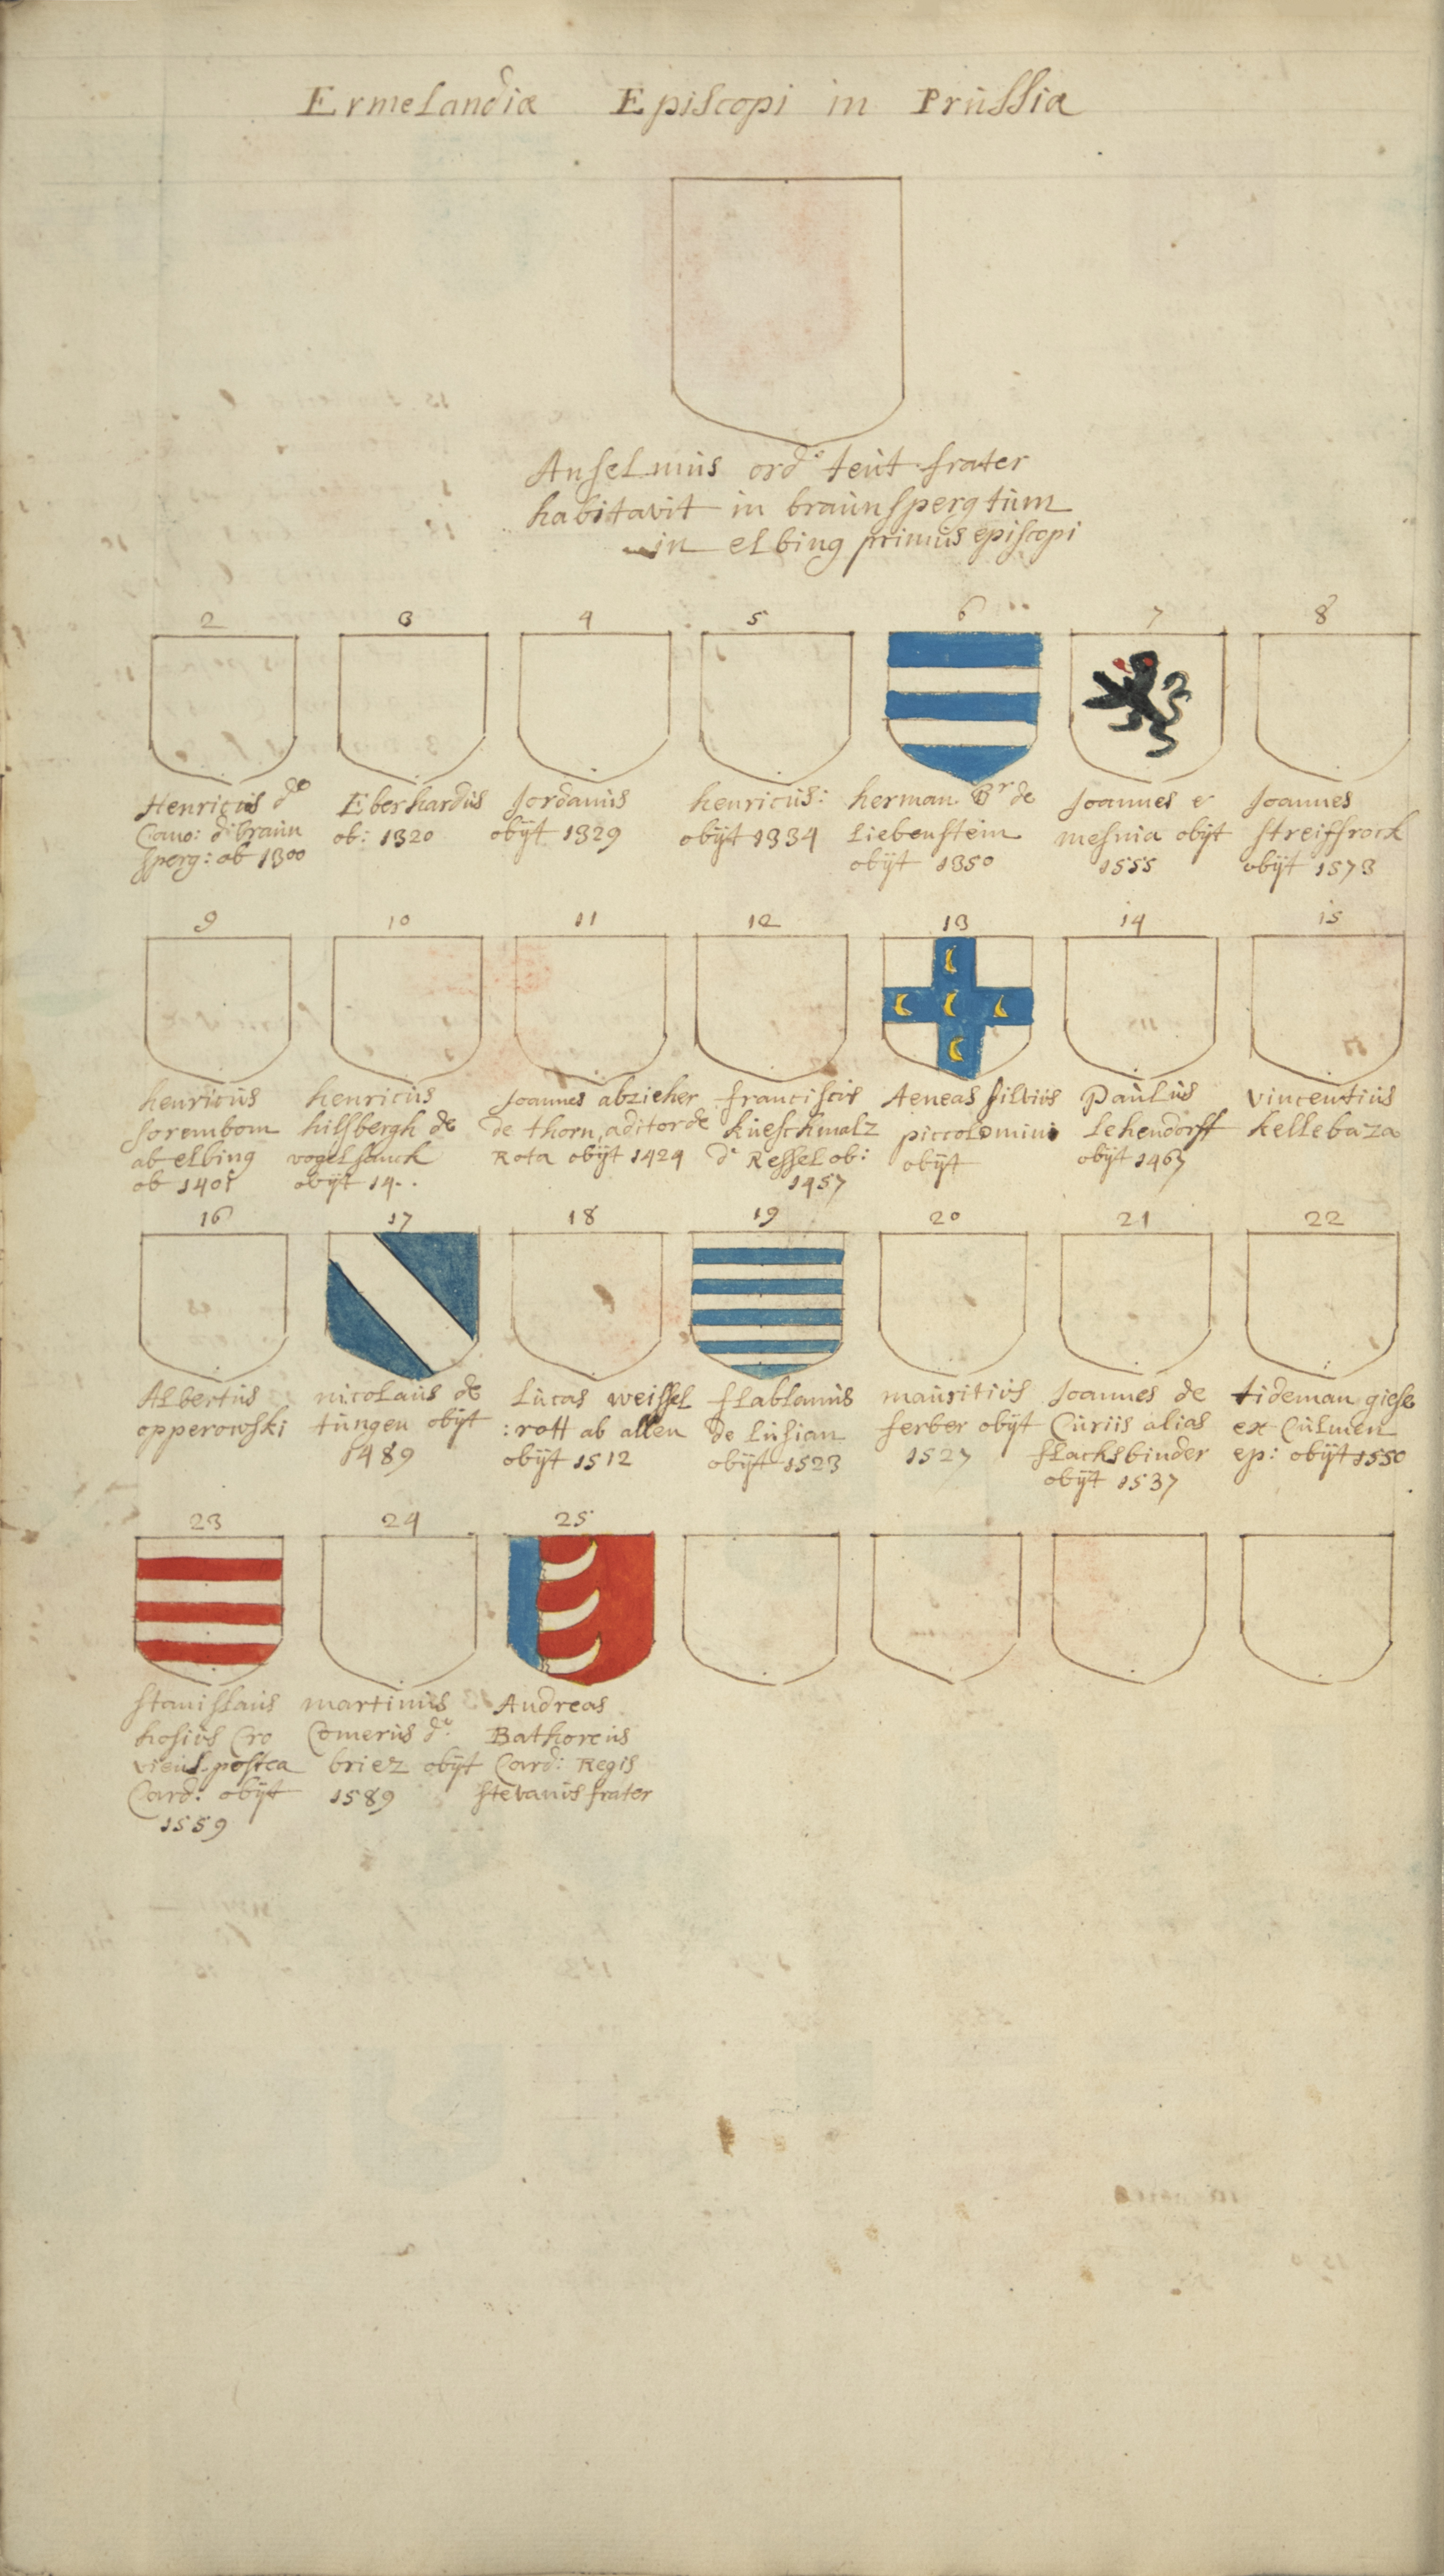 Ermelandiæ Episcopi in Prussia
Anselmus ord: teut frater
habitavit in braunsperg tum
in elbing primus episcopi
2
Henricus de
Cano: di braun
sperg: ob 1300
3
Eberhardus
ob: 1320
4
Jordanus
obijt 1329
5
henricus:
obijt 1334
6
herman Br de
Liebenstein
obijt 1350
7
Joannes e
mesnia obijt
1555
8
Joannes
streifrock
obijt 1573
9
henricus
sorembom
ab elbing
ob 1401
10
henricus
hilsbergh de
vogelsanck
obijt 14..
11
Joannes abzieher
de thorn, aditor de
Rota obijt 1424
12
franciscus
kueschmalz
de Ressel ob:
1457
13
Aeneas silvius
piccolomini
obijt
14
Paulus
Lehendorff
obijt 1467
15
vincentius
kellebaza
16
Albertus
opperowski
17
nicolaus de
tungen obijt
1489
18
Lucas weissel
:rott ab allen
obijt 1512
19
flabianus
de lusian
obijt 1523
20
mauritius
ferber obijt
1527
21
Joannes de
Curiis alias
flachsbinder
obijt 1537
22
tideman giese
ex Culmen
ep: obijt 1550
23
stanislaus
hosius Cro
viens. postea
Card: obijt
1559
24
martinus
Comerus de
briez obijt
1589
25
Andreas
Bathoreus
Card: Regis
stevanus frater